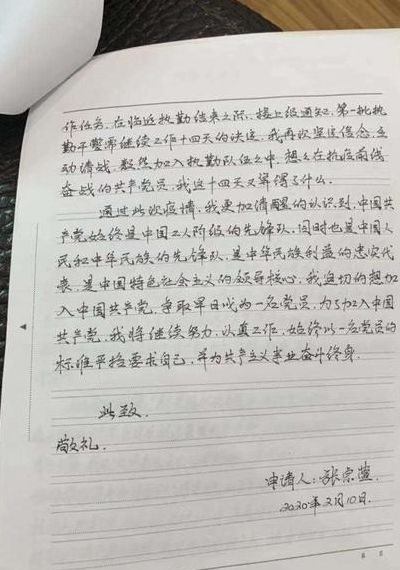 作任务,在临近执勤结束之际,接上级通知,第一批执
勤干警需继续工作十四天的决定,我再次坚定信念,主
动请战,毅然加入执勤队伍之中,想想在抗疫前线
奋战的共产党员,我这十四天又算得了什么。
通过此次疫情,我更加清醒的认识到,中国共
产党始终是中国工人阶级的先锋队,同时也是中国人
民和中华民族的先锋队,是中华民族利益的忠实代
表,是中国特色社会主义的领导核心,我迫切的想加
入中国共产党,争取早日成为一名党员,为了加入中国
共产党,我将继续努力,认真工作,始终以一名党员的
标准严格要求自己,并为共产主义事业奋斗终身。
此致,
敬礼。
申请人:张崇
2020年2月10日.